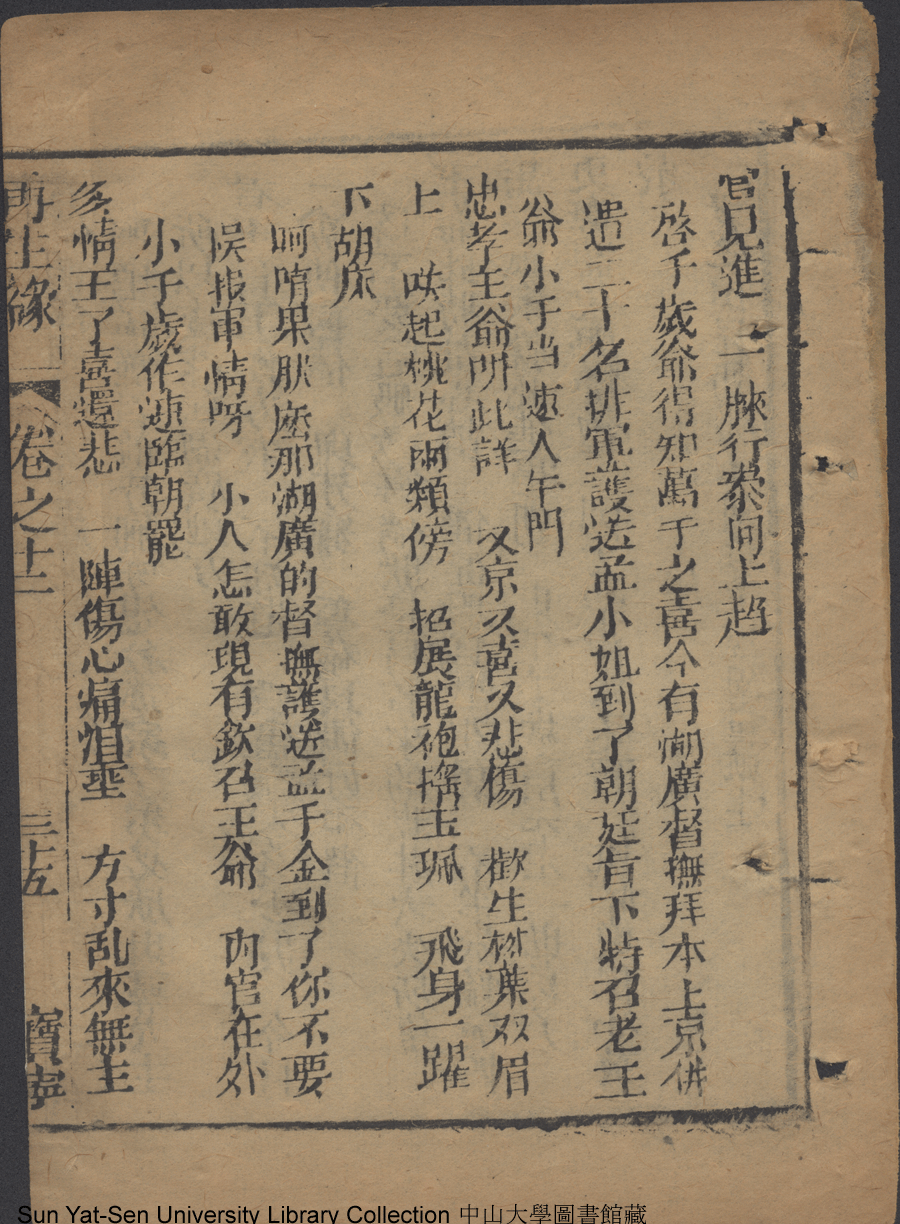 官見進　二膝行參向上趋
啓千歲爺得知萬千之喜今有湖廣督撫拜本上京併
遣二十名排軍護送孟小姐到了朝廷旨下特召老王
爺小千当速入午門
忠孝王爺听此詳　又京又喜又悲傷　歡生柳葉双眉
上　咲起桃花兩頰傍　招展龍袍搖玉珮　飛身一躍
下胡床
呵唷果肰庅那湖廣的督撫護送孟千金到了你不要
悮报軍情呀　小人怎敢現有欽召王爺　内官在外
小千歲作速臨朝罷
多情王了喜還悲　一陣傷心痛泪垂　方寸乱來無主
再生緣　卷之十二　三十五　寶寧
Sun Yat-Sen University Library Collection 中山大學圖書館藏